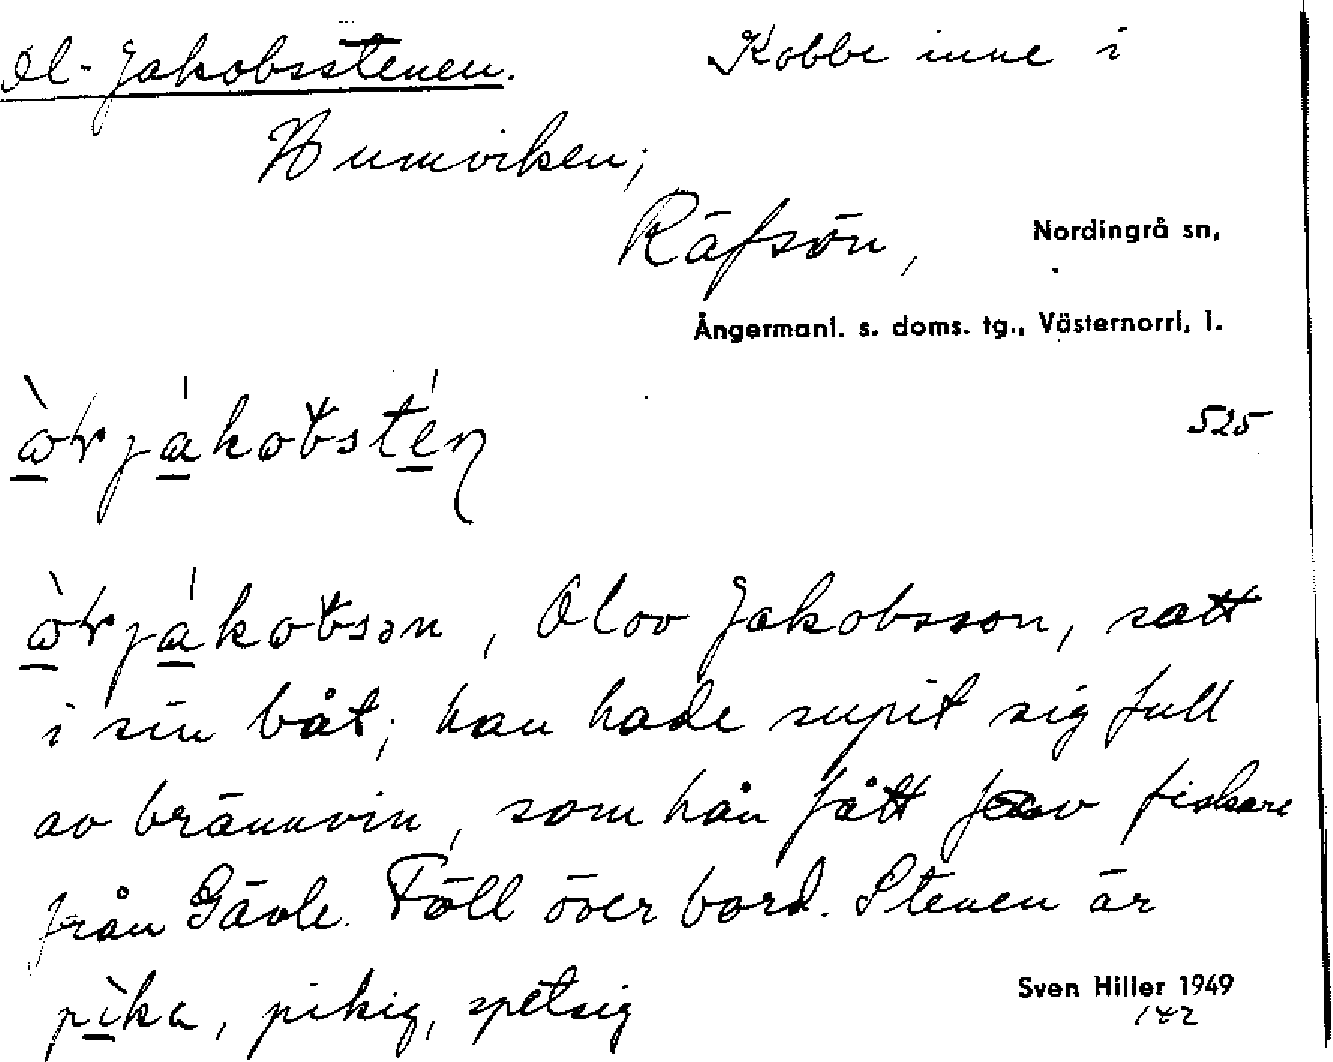 Ol-Jakobsstenen. Kobbe inne i
Humviken;
Räfsön, Nordingrå sn,
Ångermanl. s. doms. tg., Västernorrl. l.
525
Olov Jakobsson, satt
i sin båt; han hade supit sig full
av brännvin, som han fått av fiskare
från Gävle. Föll över bord. Stenen är
pìka, pikig, spetsig
Sven Hiller 1949
142